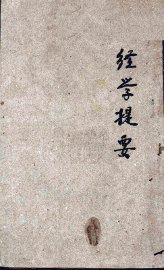 经学提要